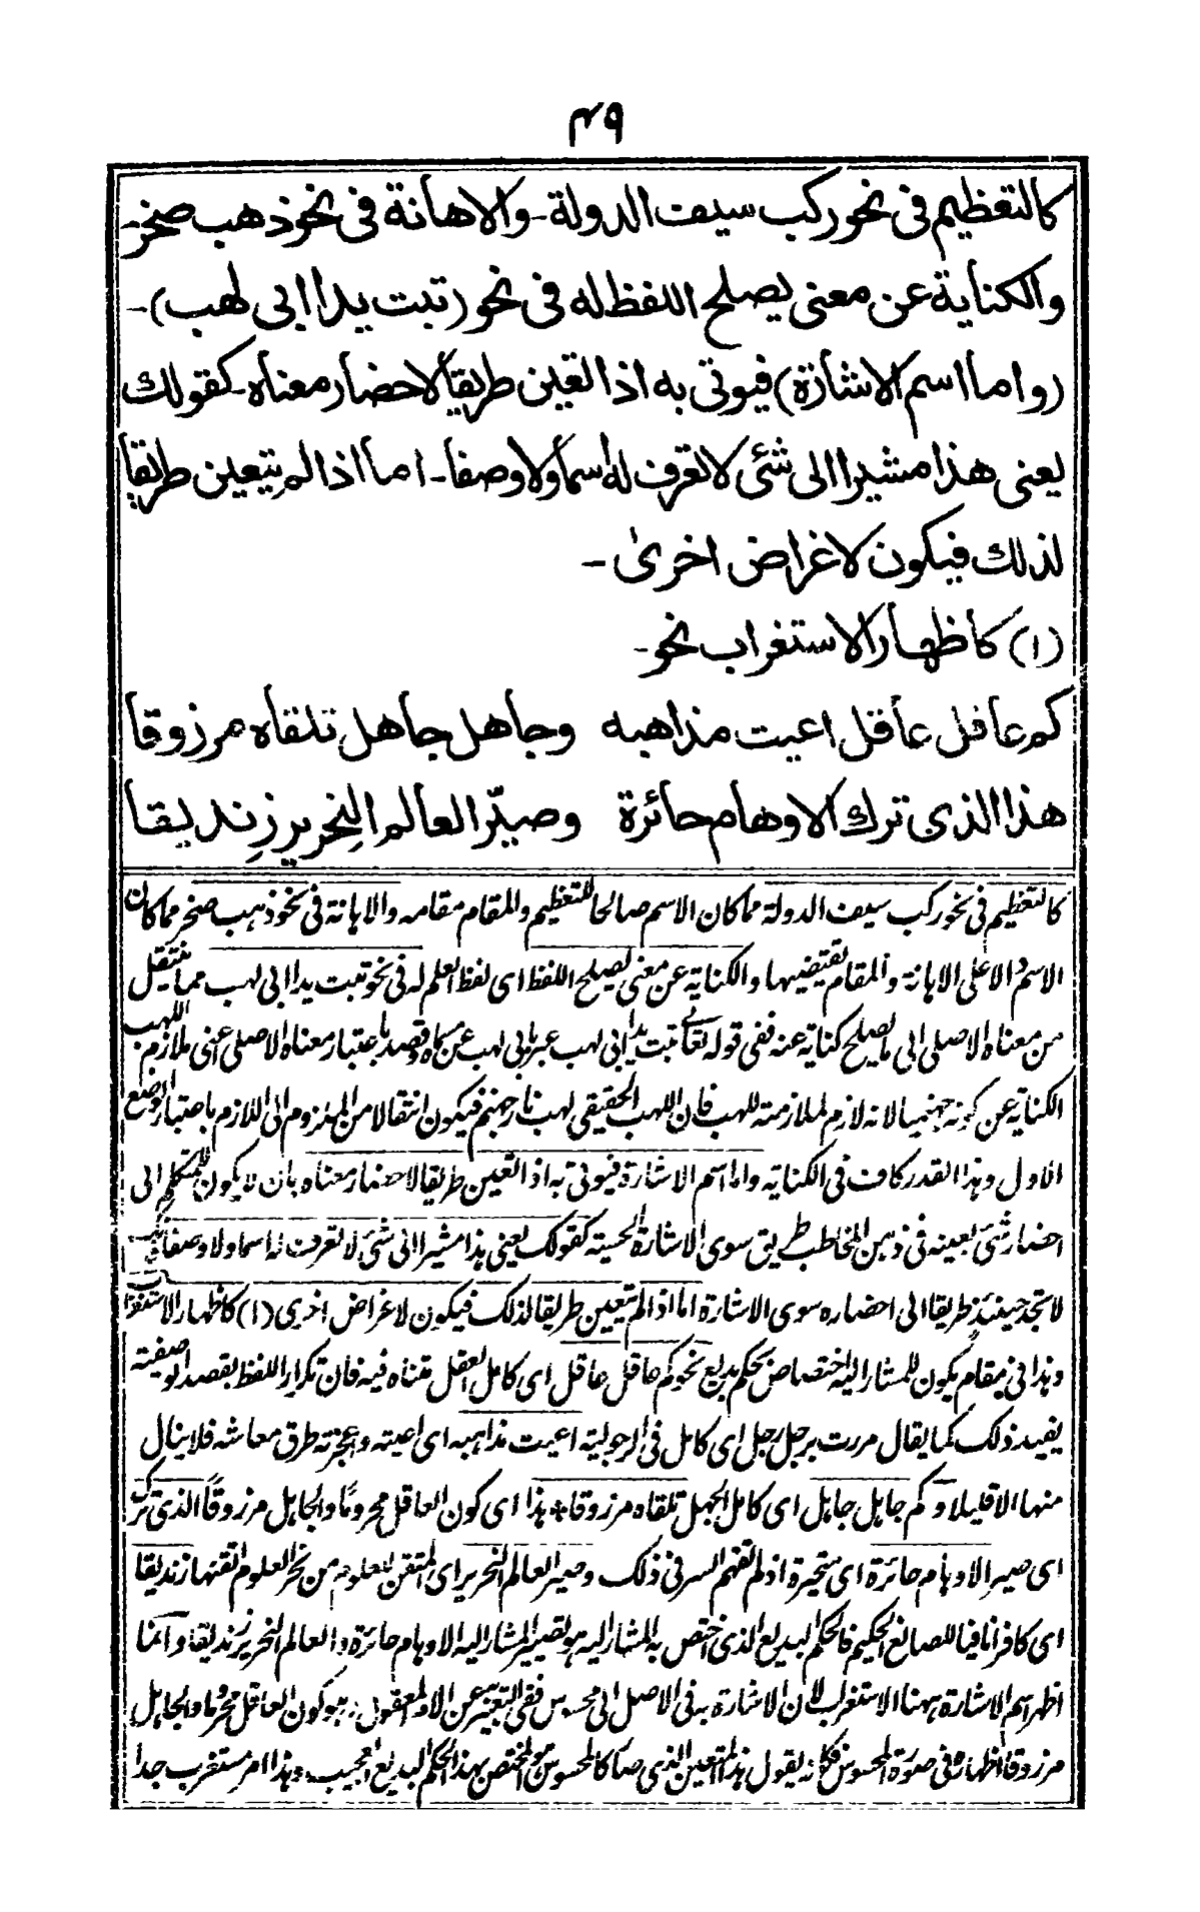 ٤٩
كالتعظيم فى نحو ركب سيف الدولة - والاهانة فى نحو ذهب صخر -
والكناية عن معنى يصلح اللفظ له فى نحو (تبت يدا ابى لهب) -
(واما اسم الاشارة) فيوتى به اذا تعين طريقا لاحضار معناه - كقولك
يعنى هذا مشيرا الى شئى لا تعرف له اسما ولا وصفا - اما اذا لم يتعين طريقا
لذلك فيكون لاغراض اخرىٰ -
(١) كاظهار الاستغراب نحو -
كم عاقل عاقل اعيت مذاهبه وجاهل جاهل تلقاه مرزوقا
هذا الذى ترك الاوهام حائرة وصيّر العالم النِحرير زِنديقا
كالتعظيم فى نحو ركب سيف الدولة مما كان الاسم صالحا للتعظيم والمقام مقامه والاهانة فى نحو ذهب صخر مما كان
الاسم دالا على الاهانة والمقام يقتضيها والكناية عن معنى يصلح اللفظ اى لفظ العلم له فى نحو تبت يدا ابى لهب مما ينتقل
من معناه الاصلى الى ما يصلح كناية عنه ففى قوله تعالٰے تبت يدا ابى لهب عبر بابى لهب عن مسماه وقصد باعتبار معناه الاصلى اعنى ملازم اللهب
الكناية عن كونه جهنميا لانه لازم لملازمته للهب فان اللهب الحقيقى لهب نار جهنم فيكون انتقالا من الملزوم الى اللازم باعتبار الوضع
الاول وهذا القدر كاف فى الكناية واما اسم الاشارة فيوتى به اذا تعين طريقا لاحضار معناه بان لا يكون للمتكلم الى
احضار شئى بعينه فى ذهن المخاطب طريق سوى الاشارة الحسية كقولك يعنى هذا مشيرا الى شئ لا تعرف له اسما ولا وصفا
لا تجد حينئذ طريقا الى احضاره سوى الاشارة اما اذا لم يتعين طريقا لذلك فيكون لاغراض اخرى (١) كاظهار الاستغراب
وهذا فى مقام يكون للمشار اليه اختصاص بحكم بديع نحو كم عاقل عاقل اى كامل العقل متناه فيه فان تكرار اللفظ بقصد الوصفية
يفيد ذلك كما يقال مررت برجل رجل اى كامل فى الرجولية اعيت مذاهبه اى اعيته واعجزته طرق معاشه فلا ينال
منها الا قليلا وكم جاهل جاهل اى كامل الجهل تلقاه مرزوقا * هذا اى كون العاقل محروما والجاهل مرزوقا الذى ترك
اى صير الاوهام حائرة اى متحيرة اذ لم تفهم السر فى ذلك وصير العالم النحرير اى المتقن للعلوم من نحر العلوم اتقنها زنديقا
اى كافرا نافيا للصانع الحكيم فالحكم البديع الذى اختص به المشار اليه هو تصيير المشار اليه الاوهام حائرة والعالم النحرير زنديقا وانما
اظهر اسم الاشارة ههنا الاستغراب لان الاشارة به فى الاصل الى محسوس ففى التعبير عن الامر المعقول هو كون العاقل محروما والجاهل
مرزوقا اظهاره فى صورة المحسوس فكانه يقول هذا المتعين الذى صار كالمحسوس هو المختص بهذا الحكم البديع العجيب وهذا امر مستغرب جدا